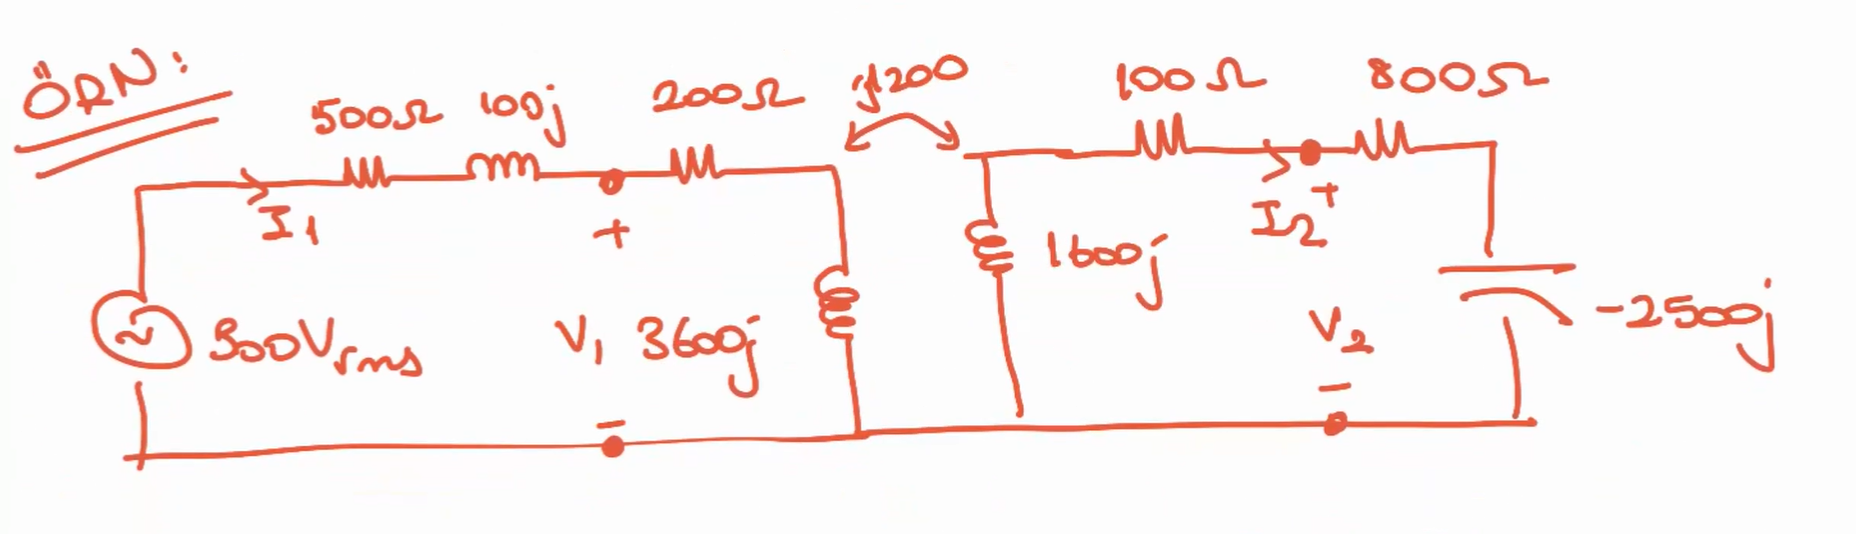 ÖRN:
500Ω 100j 200Ω j1200 100Ω 800Ω
I1 + I2 +
300Vrms V1 3600j 1600j V2 -2500j
- -